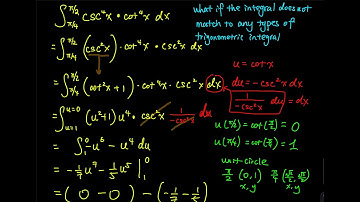 ∫_{π/4}^{π/2} csc⁴x • cot⁴x dx
= ∫_{π/4}^{π/2} (csc²x) • cot⁴x • csc²x dx
= ∫_{π/4}^{π/2} (cot²x + 1) • cot⁴x • csc²x dx
= ∫_{u=1}^{u=0} (u²+1) u⁴ • csc²x 1/-csc²x du
= ∫_1^0 -u⁶ - u⁴ du
= -1/7 u⁷ - 1/5 u⁵ |_1^0
= (0 - 0) - (-1/7 - 1/5)
what if the integral does not
match to any types of
trigonometric integral
u = cot x
du = -csc²x dx
1/-csc²x du = dx
u(π/2) = cot(π/2) = 0
u(π/4) = cot(π/4) = 1
unit-circle
π/2 (0,1) π/4 (√2/2, √2/2)
x, y x, y